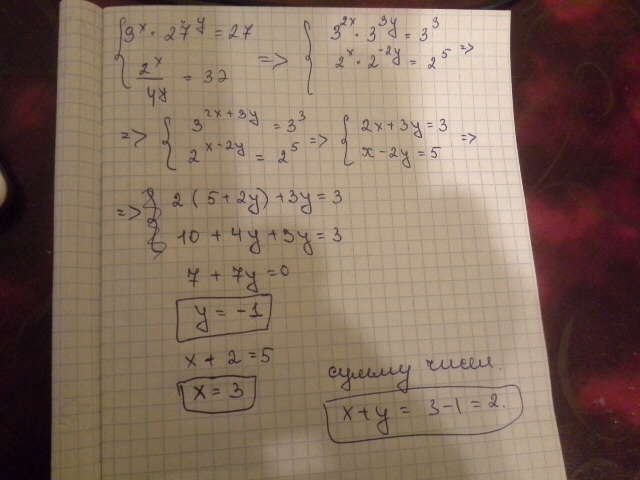 { 3^x · 27^y = 27 => { 3^{2x} · 3^{3y} = 3^3
2^x / 4^y = 32 2^x · 2^{-2y} = 2^5 =>
=> { 3^{2x+3y} = 3^3 => { 2x+3y=3 =>
2^{x-2y} = 2^5 x-2y=5
=> 2(5+2y)+3y=3
10+4y+3y=3
7+7y=0
y=-1
x+2=5
x=3
сумму чисел.
x+y = 3-1=2.